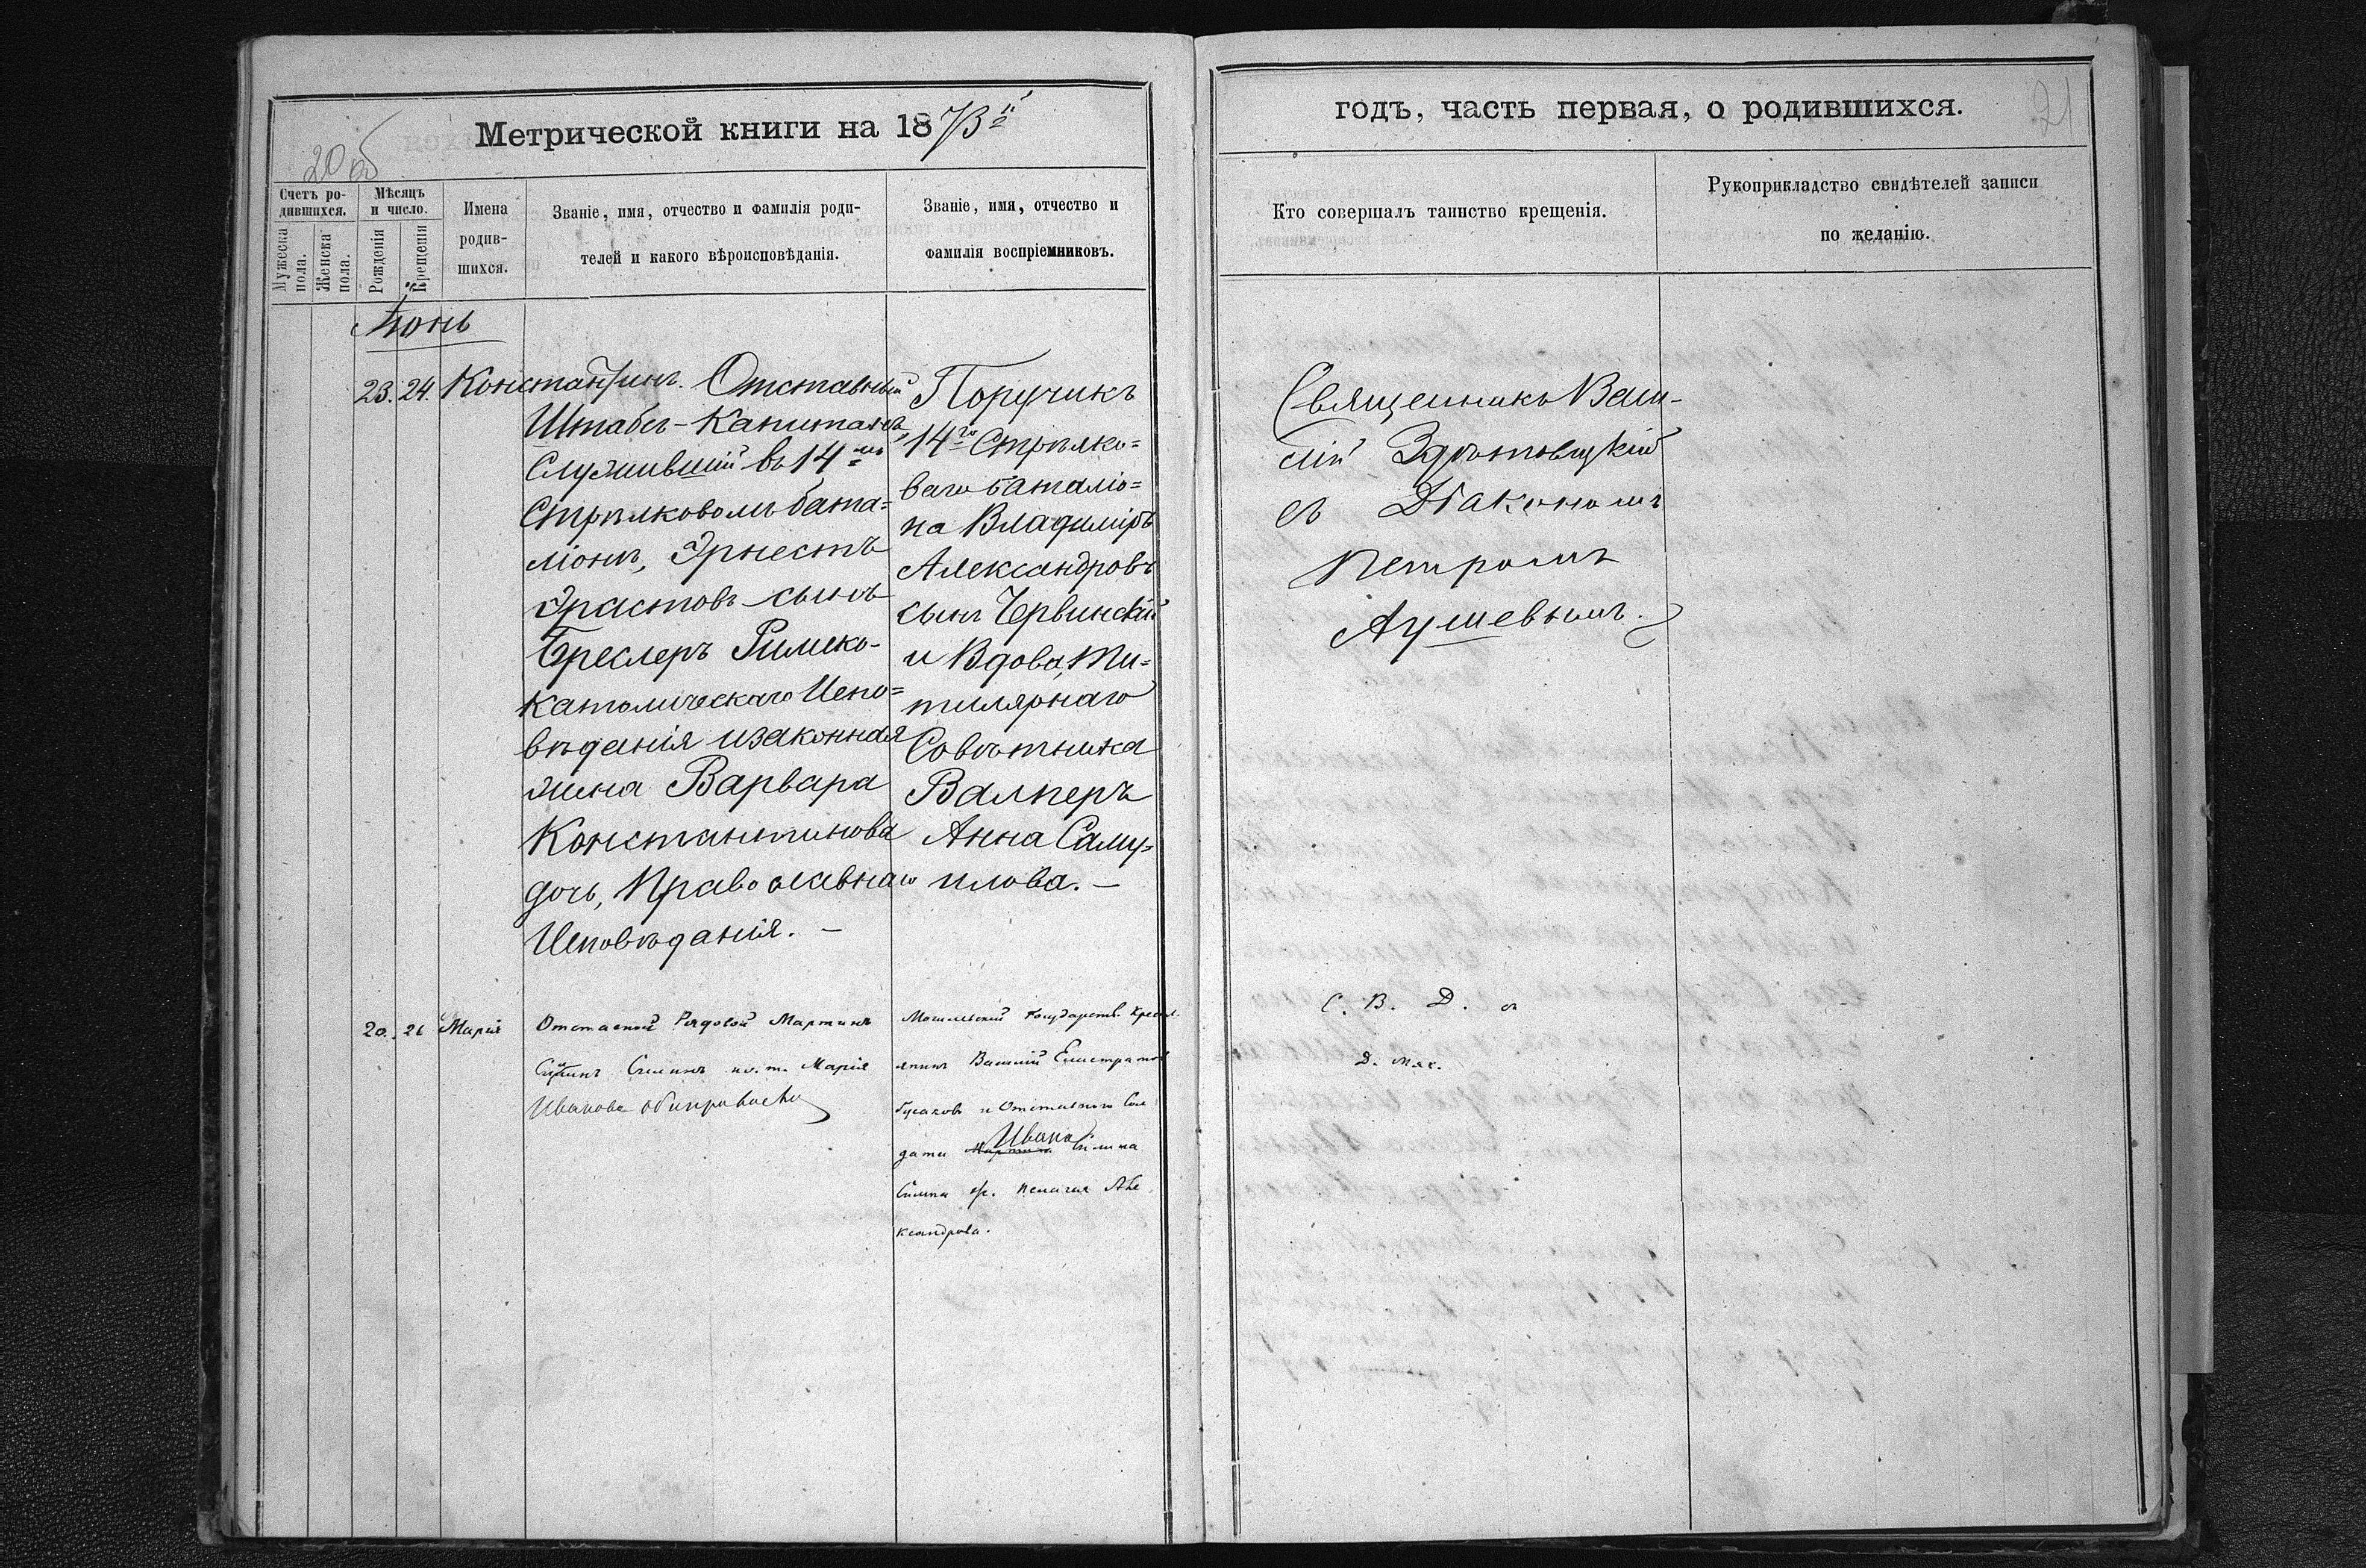 Метрической книги на 1873й
годъ, часть первая, о родившихся.
20 об
21
Счетъ ро-
дившихся.
Мужеска
пола.
Женска
пола.
Мѣсяцъ
и число.
Рожденія
Крещенія
Имена
родив-
шихся.
Званіе, имя, отчество и фамилія роди-
телей и какого вѣроисповѣданія.
Званіе, имя, отчество и
фамилія воспріемниковъ.
Кто совершалъ таинство крещенія.
Рукоприкладство свидѣтелей записи
по желанію.
Іюнь
23. 24. Константинъ.
Отставный
Штабсъ-Капитанъ,
Служившій въ 14мъ
Стрѣлковомъ бата=
ліонѣ, Эрнестъ
Эрастовъ сынъ
Бреслеръ Римско-
католическаго Испо=
вѣданія и законная
жена Варвара
Константинова
дочь, Православнаго
Исповѣданія. –
Поручикъ
14го Стрѣлко=
ваго баталіо=
на Владиміръ
Александровъ
сынъ Червинскій
и Вдова, Ти=
тулярнаго
Совѣтника
Валперъ
Анна Саму=
илова. –
Священникъ Васи-
лій Здѣтовецкій
съ Діакономъ
Петромъ
Аушевымъ.
20. 26 Марія
Отставной Рядовой Мартинъ
Силинъ и з. ж. Марія
Иванова оба православн
Могилевскій Государств. Крест
янинъ Василій Елистратов
Гусаковъ и Отставнаго Сол
дата Мартина Ивана Силина
Силина ж. Пелагія Але
ксандрова.
С. В. З. съ
Д. тѣмъ.